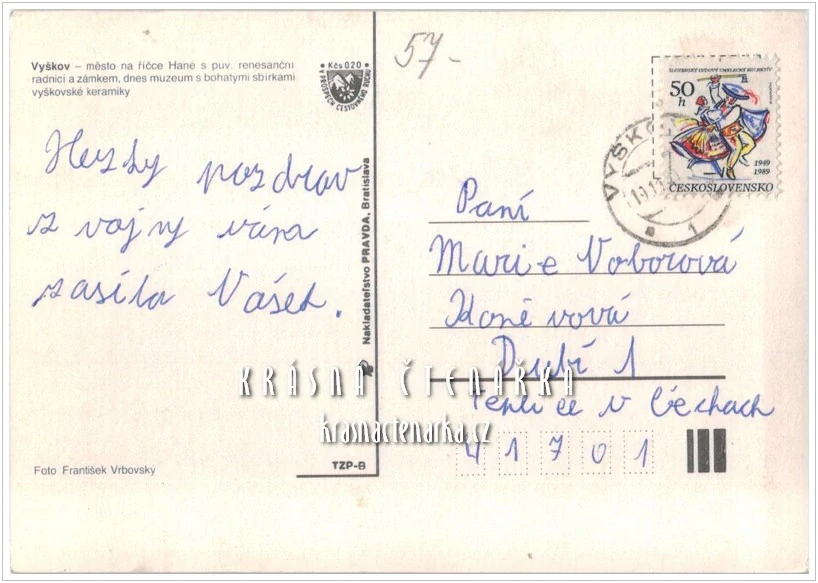 57-
Vyškov – město na říčce Hané s puv. renesanční
radnicí a zámkem, dnes muzeum s bohatými sbírkami
vyškovské keramiky
Kčs 020
V PROSPĚCH CESTOVNÉHO RUCHU
Hezky pozdrav
z vojny vám
zasíla Vašek.
Foto František Vrbovsky
Nakladateľstvo PRAVDA, Bratislava
TZP-B
SLOVENSKÝ ĽUDOVÝ UMELECKÝ KOLEKTÍV
50
h
1949
1989
ČESKOSLOVENSKO
VYŠKOV
1
Paní
Marie Voborová
Koněvová
Dubí 1
Teplice v Čechach
41701
KRÁSNÁ ČTENÁŘKA
krasnactenarka.cz